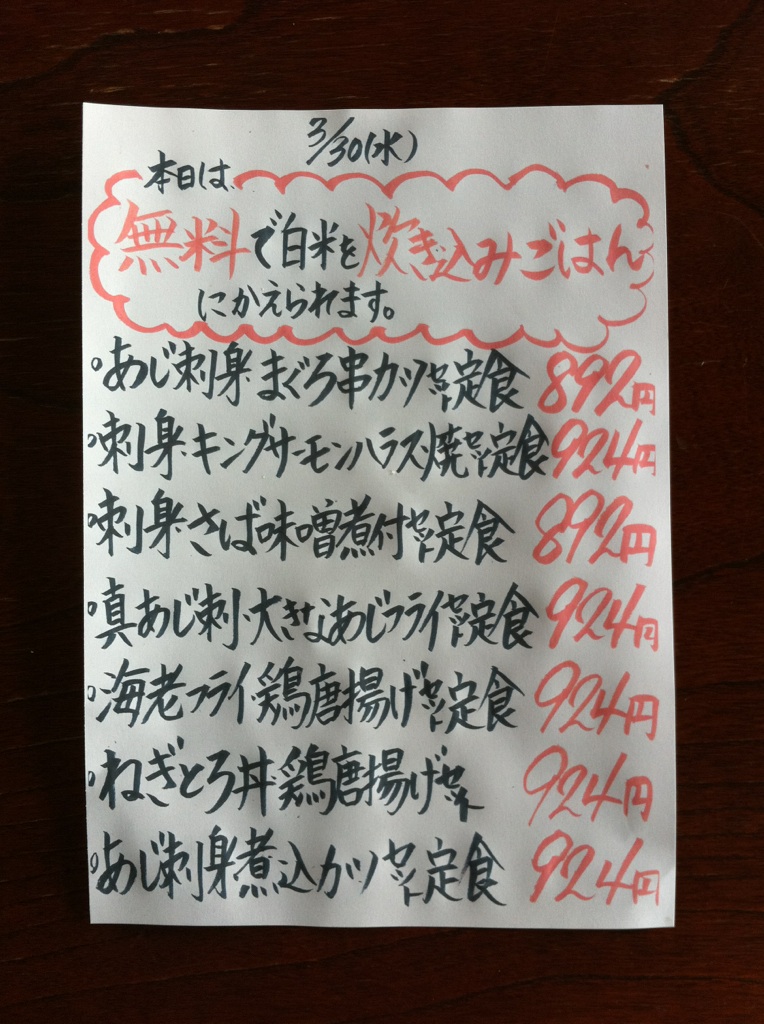 3/30(水)
本日は、
無料で白米を炊き込みごはん
にかえられます。
。あじ刺身・まぐろ串カツセット定食 892円
。刺身・キングサーモンハラス焼セット定食 924円
。刺身・さば味噌煮付セット定食 892円
。真あじ刺・大きなあじフライセット定食 924円
。海老フライ・鶏唐揚げセット定食 924円
。ねぎとろ丼・鶏唐揚げセット 924円
。あじ刺身・煮込カツセット定食 924円